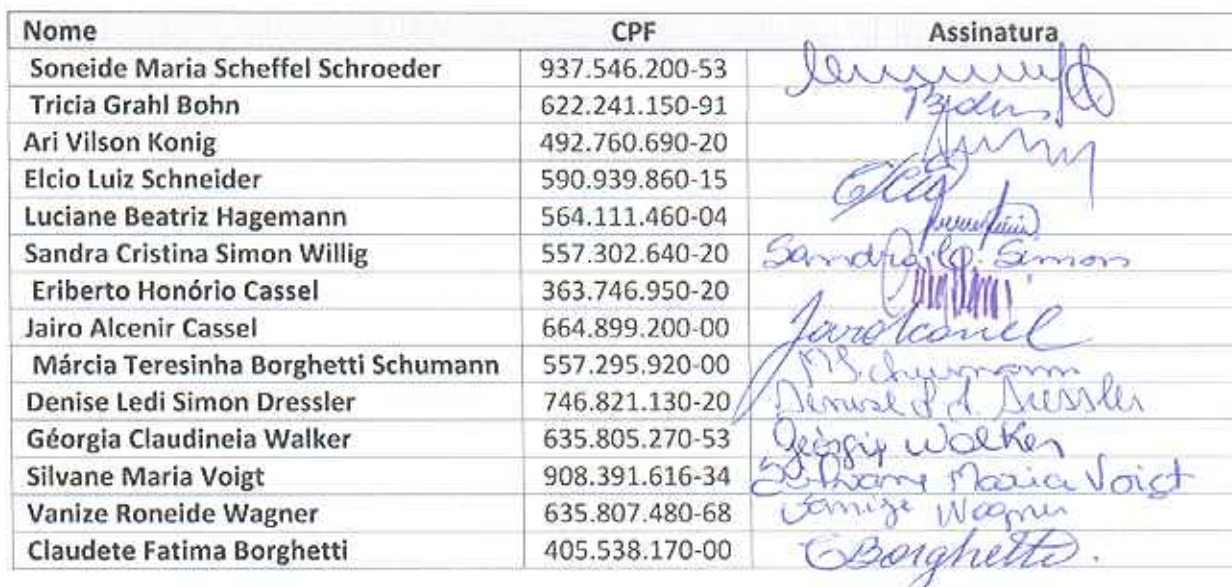 Nome CPF Assinatura
Soneide Maria Scheffel Schroeder 937.546.200-53
Tricia Grahl Bohn 622.241.150-91
Ari Vilson Konig 492.760.690-20
Elcio Luiz Schneider 590.939.860-15
Luciane Beatriz Hagemann 564.111.460-04
Sandra Cristina Simon Willig 557.302.640-20 Sandra C. Simon
Eriberto Honório Cassel 363.746.950-20
Jairo Alcenir Cassel 664.899.200-00
Márcia Teresinha Borghetti Schumann 557.295.920-00 MSchumann
Denise Ledi Simon Dressler 746.821.130-20 Denise L. S. Dressler
Géorgia Claudineia Walker 635.805.270-53 Geórgia Walker
Silvane Maria Voigt 908.391.616-34 Silvane Maria Voigt
Vanize Roneide Wagner 635.807.480-68 Vanize Wagner
Claudete Fatima Borghetti 405.538.170-00 CBorghetti.